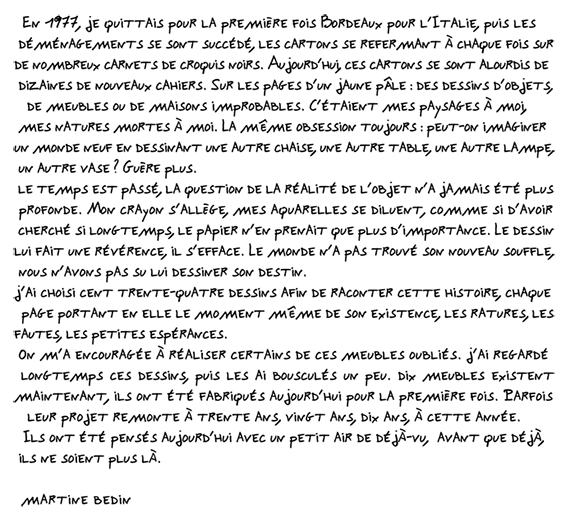 En 1977, je quittais pour la première fois Bordeaux pour l'Italie, puis les
déménagements se sont succédé, les cartons se refermant à chaque fois sur
de nombreux carnets de croquis noirs. Aujourd'hui, ces cartons se sont alourdis de
dizaines de nouveaux cahiers. Sur les pages d'un jaune pâle : des dessins d'objets,
de meubles ou de maisons improbables. C'étaient mes paysages à moi,
mes natures mortes à moi. La même obsession toujours : peut-on imaginer
un monde neuf en dessinant une autre chaise, une autre table, une autre lampe,
un autre vase ? Guère plus.
Le temps est passé, la question de la réalité de l'objet n'a jamais été plus
profonde. Mon crayon s'allège, mes aquarelles se diluent, comme si d'avoir
cherché si longtemps, le papier n'en prenait que plus d'importance. Le dessin
lui fait une révérence, il s'efface. Le monde n'a pas trouvé son nouveau souffle,
nous n'avons pas su lui dessiner son destin.
j'ai choisi cent trente-quatre dessins afin de raconter cette histoire, chaque
page portant en elle le moment même de son existence, les ratures, les
fautes, les petites espérances.
On m'a encouragée à réaliser certains de ces meubles oubliés. j'ai regardé
longtemps ces dessins, puis les ai bousculés un peu. dix meubles existent
maintenant, ils ont été fabriqués aujourd'hui pour la première fois. Parfois
leur projet remonte à trente ans, vingt ans, dix ans, à cette année.
Ils ont été pensés aujourd'hui avec un petit air de déjà-vu, avant que déjà,
ils ne soient plus là.
Martine Bedin